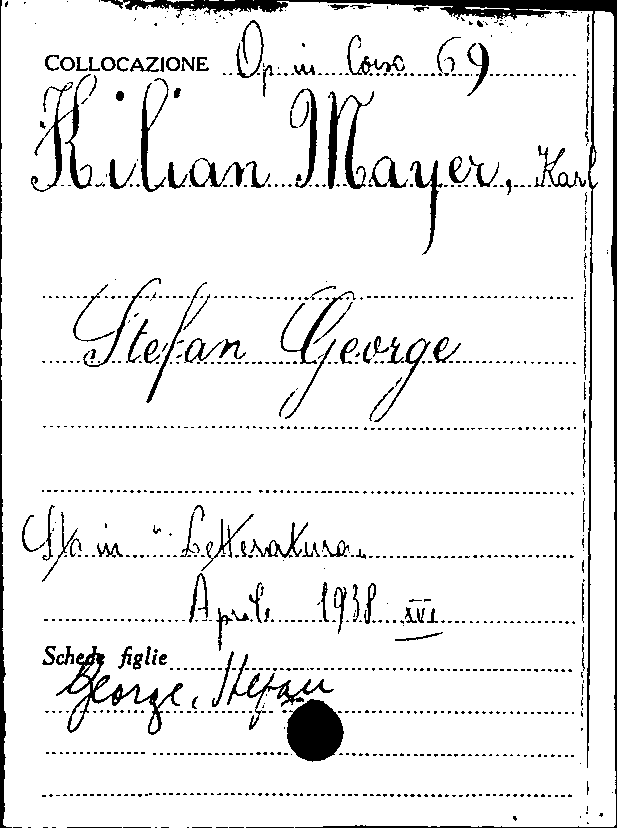 COLLOCAZIONE Op. in Corso 69
Kilian Mayer, Karl
Stefan George
Sta in "Letteratura„
Aprile 1938 XVI
Schede figlie
George, Stefan